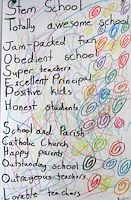 Stem School
Totally awesome school
Jam-packed fun
Obedient school
Super teachers
Excellent Principal
Positive kids
Honest students
School and Parish
Catholic Church
Happy parents
Outstanding school
Outrageous teachers
Lovable teachers